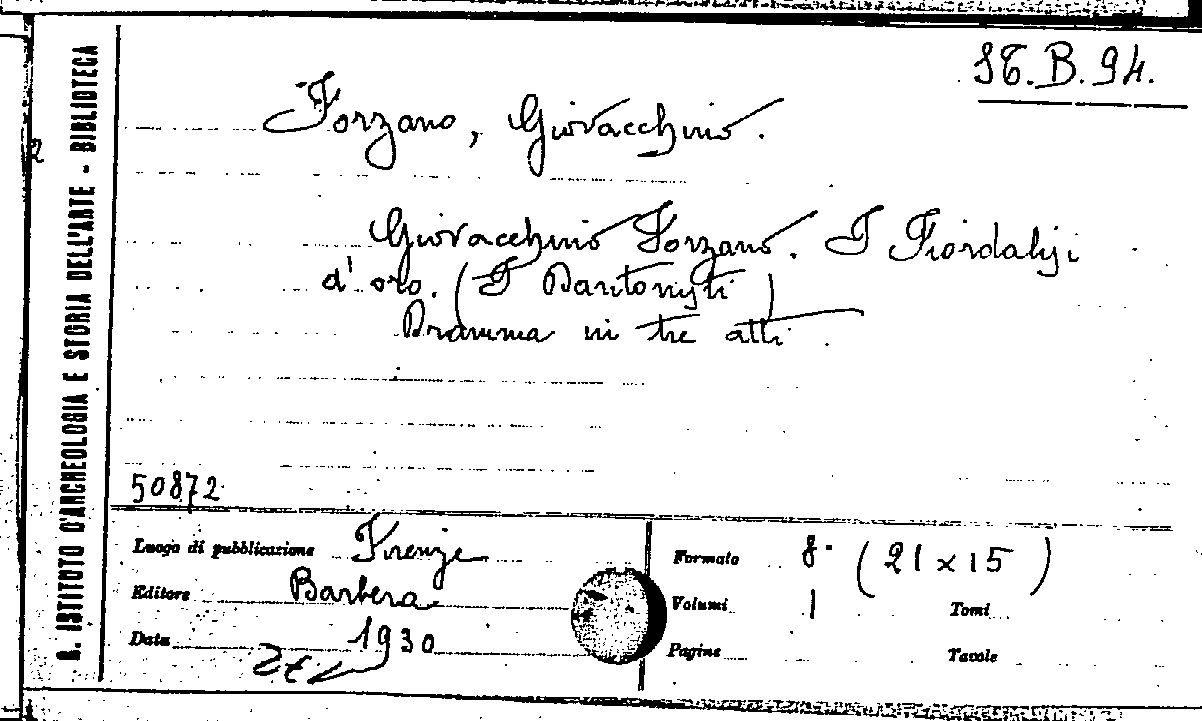 R. ISTITUTO D'ARCHEOLOGIA E STORIA DELL'ARTE - BIBLIOTECA
Forzano, Giovacchino.
Giovacchino Forzano. I Fiordalisi
d'oro. (I Dantonisti)
Dramma in tre atti.
50872
Luogo di pubblicazione Firenze
Editore Barbera
Data 1930
Formato 8° (21 x 15)
Volumi 1 Tomi
Pagine Tavole